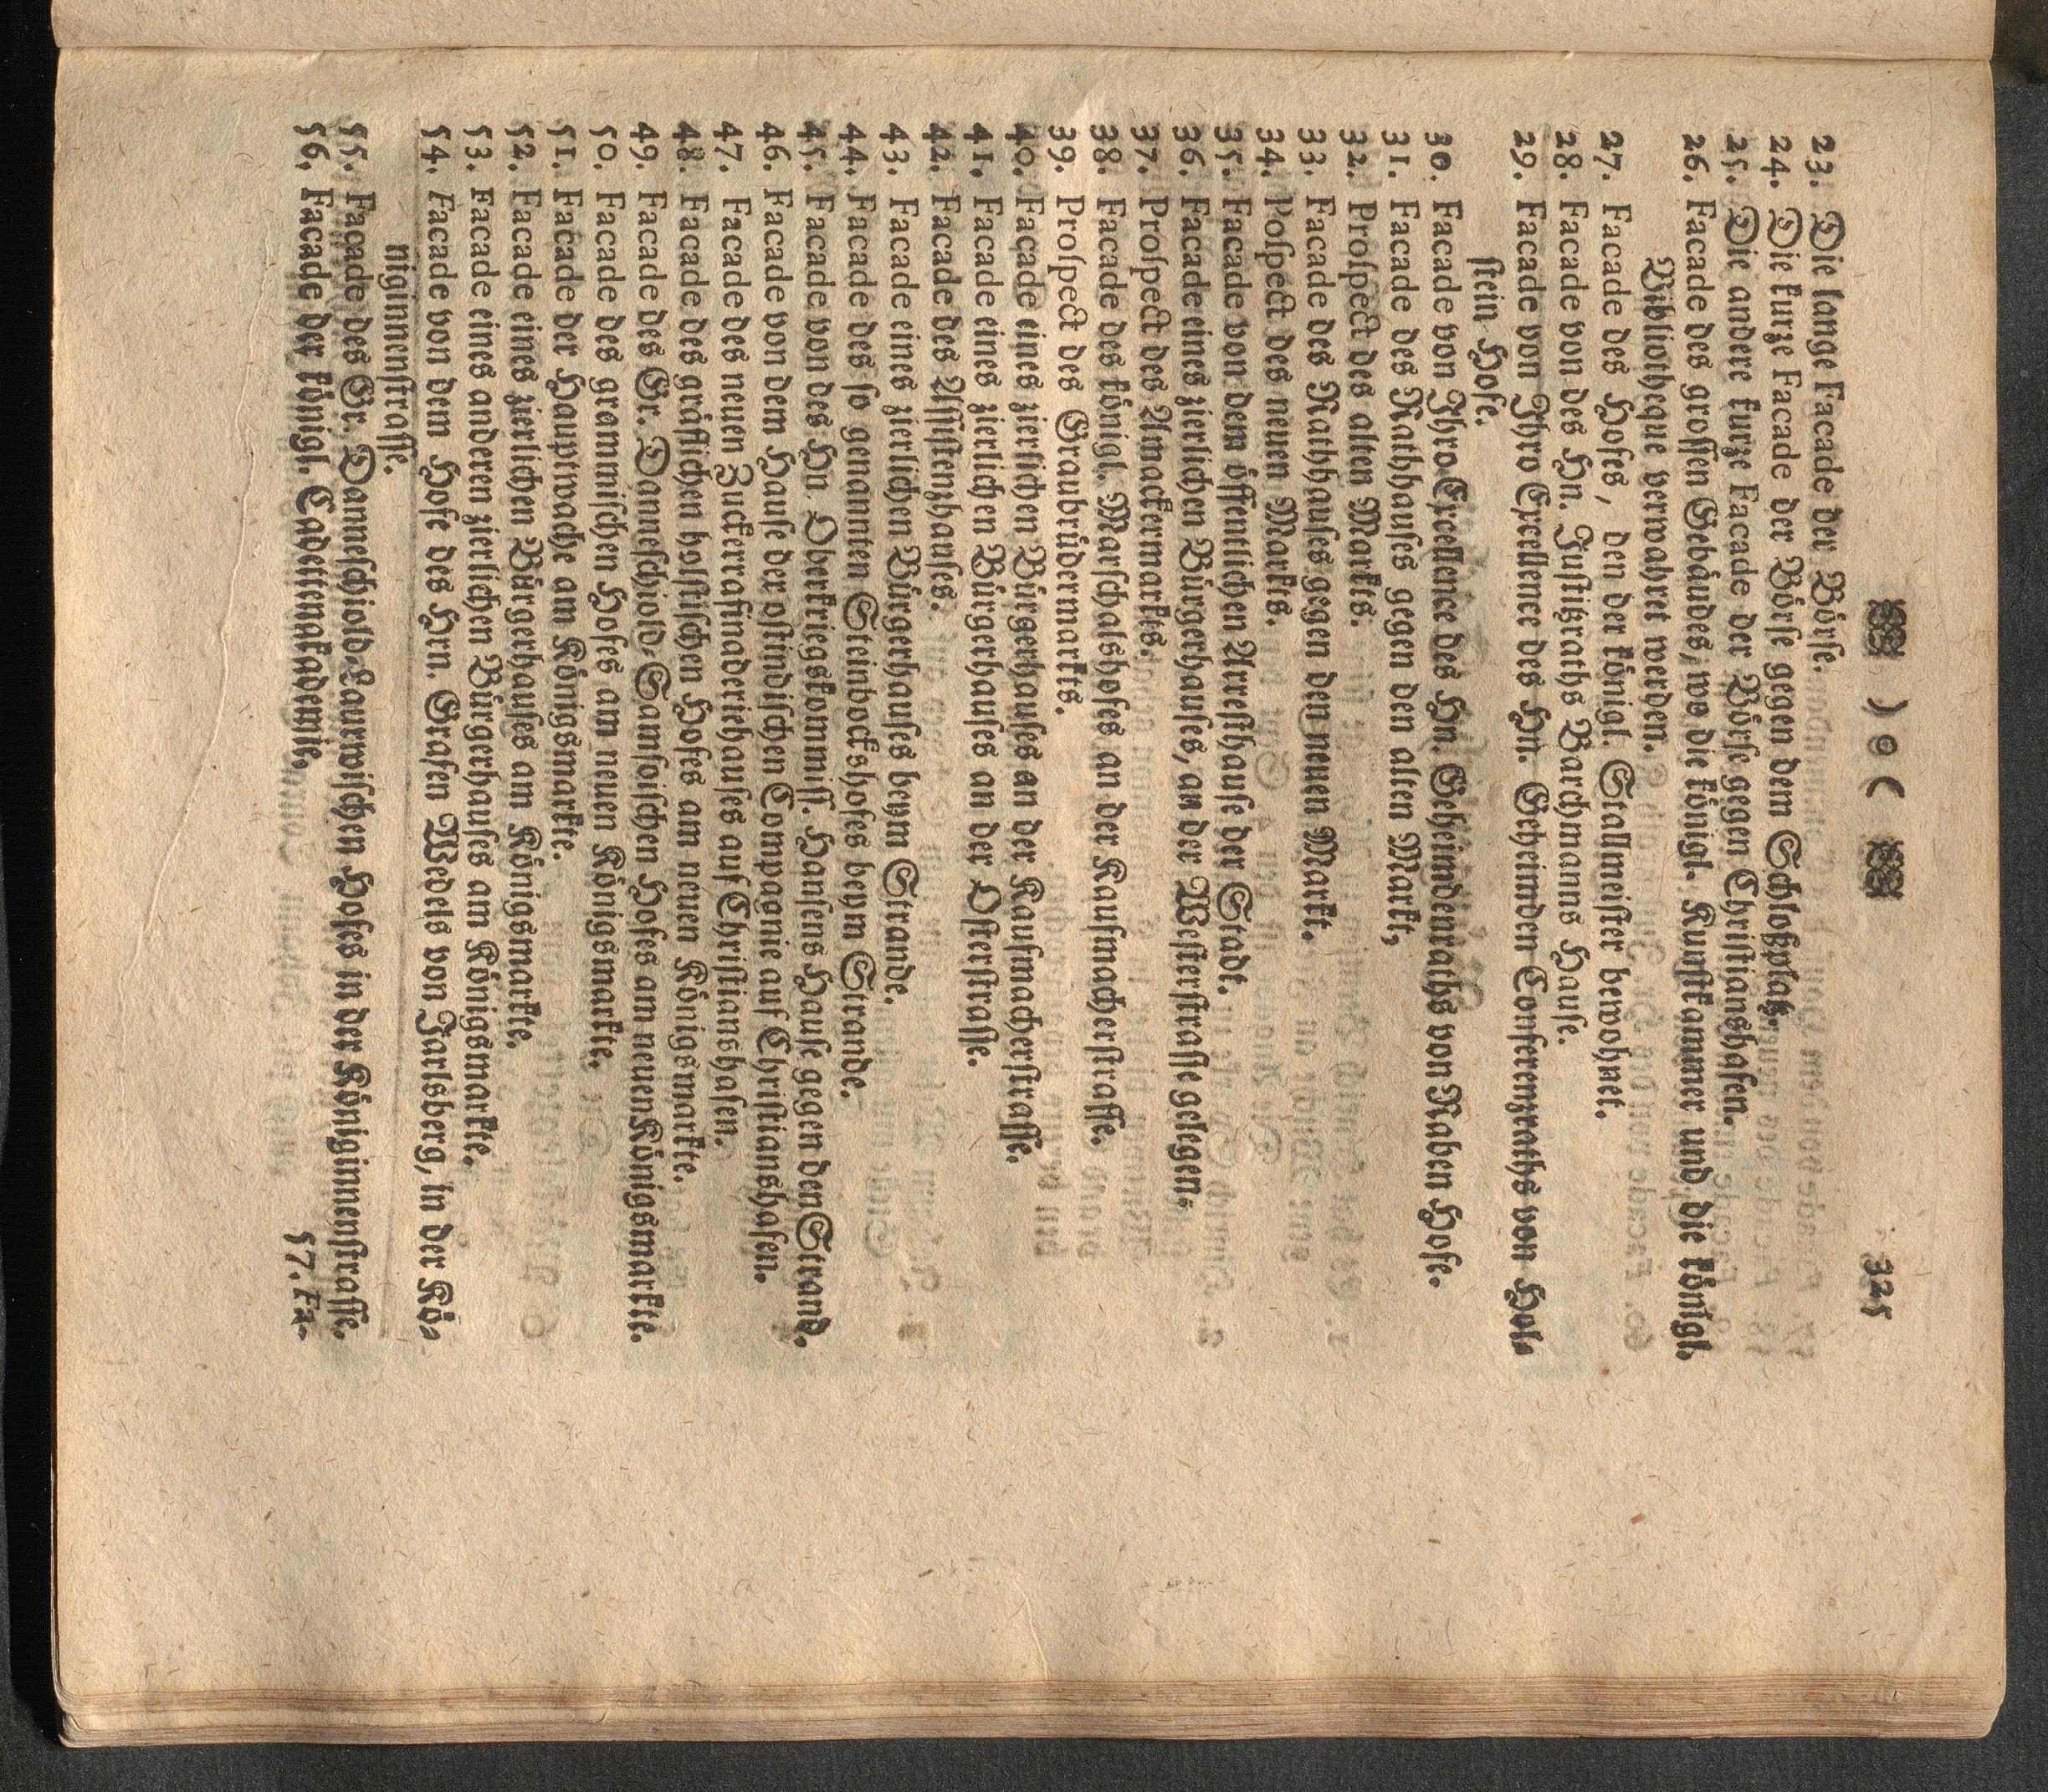 ) o ( 325
23. Die lange Facade der Börse.
24. Die kurze Facade der Börse gegen dem Schloßplatz.
25. Die andere kurze Facade der Börse gegen Christianshafen.
26. Facade des grossen Gebäudes, wo die königl. Kunstkammer und die königl.
Bibliotheque verwahret werden.
27. Facade des Hofes, den der königl. Stallmeister bewohnet.
28. Facade von des Hn. Justitzraths Barchmanns Hause.
29. Facade von Ihro Excellence des Hn. Geheimden Conferenzraths von Hol-
stein Hofe.
30. Facade von Ihro Excellence des Hn. Geheimdenraths von Raben Hofe.
31. Facade des Rathhauses gegen den alten Markt,
32. Prospect des alten Markts.
33. Facade des Rathhauses gegen den neuen Markt.
34. Pospect des neuen Markts.
35. Facade von dem öffentlichen Arresthause der Stadt.
36. Facade eines zierlichen Bürgerhauses, an der Westerstrasse gelegen.
37. Prospect des Amackermarkts.
38. Facade des königl. Marschalshofes an der Kaufmacherstrasse.
39. Prospect des Graubrüdermarkts.
40. Facade eines zierlichen Bürgerhauses an der Kaufmacherstrasse.
41. Facade eines zierlichen Bürgerhauses an der Osterstrasse.
42. Facade des Assistenzhauses.
43. Facade eines zierlichen Bürgerhauses beym Strande.
44. Facade des so genannten Steinbockshofes beym Strande.
45. Facade von des Hn. Oberkriegskommiss. Hansens Hause gegen den Strand.
46. Facade von dem Hause der ostindischen Compagnie auf Christianshafen.
47. Facade des neuen Zuckerrafinaderiehauses auf Christianshafen.
48. Facade des gräflichen holstischen Hofes am neuen Königsmarkte.
49. Facade des Gr. Danneschiold-Samsoischen Hofes am neuen Königsmarkte.
50. Facade des grammischen Hofes am neuen Königsmarkte.
51. Facade der Hauptwache am Königsmarkte.
52. Facade eines zierlichen Bürgerhauses am Königsmarkte.
53. Facade eines anderen zierlichen Bürgerhauses am Königsmarkte.
54. Facade von dem Hofe des Hrn. Grafen Wedels von Jarlsberg, in der Kö-
niginnenstrasse.
55. Facade des Gr. Danneschiold-Laurwischen Hofes in der Königinnenstrasse.
56. Facade der königl. Cadettenakademie.
57. Fa-